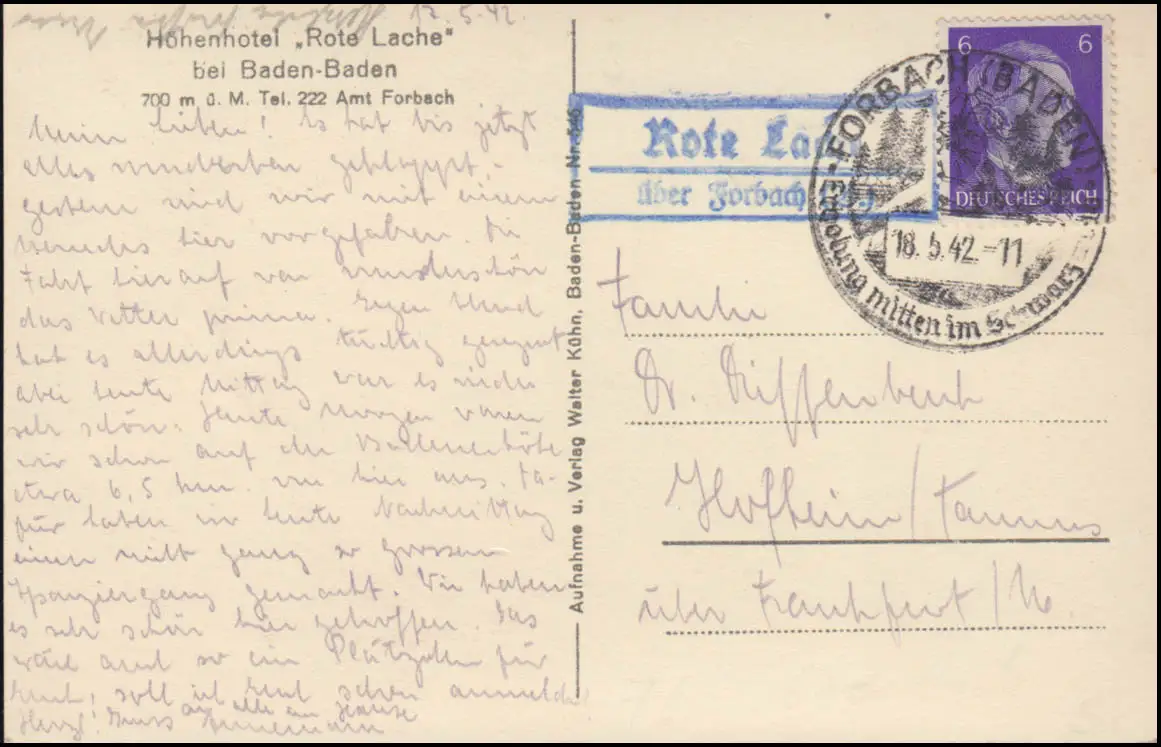 17.5.42.
Höhenhotel „Rote Lache“
bei Baden-Baden
700 m ü. M. Tel. 222 Amt Forbach
Meine Lieben! Es hat bis jetzt
alles wunderbar geklappt.
gestern sind wir mit einem
hier vorgefahren. Die
Fahrt hierauf war wunderschön
das Wetter prima. Gegen Abend
hat es allerdings tüchtig geregnet
aber heute Mittag war es wieder
sehr schön. Heute Morgen waren
wir schon auf der
etwa 6,5 km. von hier aus. Da-
für haben wir heute Nachmittag
einen nicht ganz so grossen
Spaziergang gemacht. Wir haben
es sehr schön hier getroffen. Das
wäre auch so ein Plätzchen für
Euch, soll ich Euch schon anmelden
Herzl. Gruss an alle zu Hause
Annemarie
Aufnahme u. Verlag Walter Kühn, Baden-Baden Nr.
Rote Lache
über Forbach
FORBACH (BADEN)
18.5.42.-11
Erholung mitten im Schwarz
6 6
DEUTSCHES REICH
Familie
Dr. Dieffenbach
Hofheim/Taunus
über Frankfurt/M.